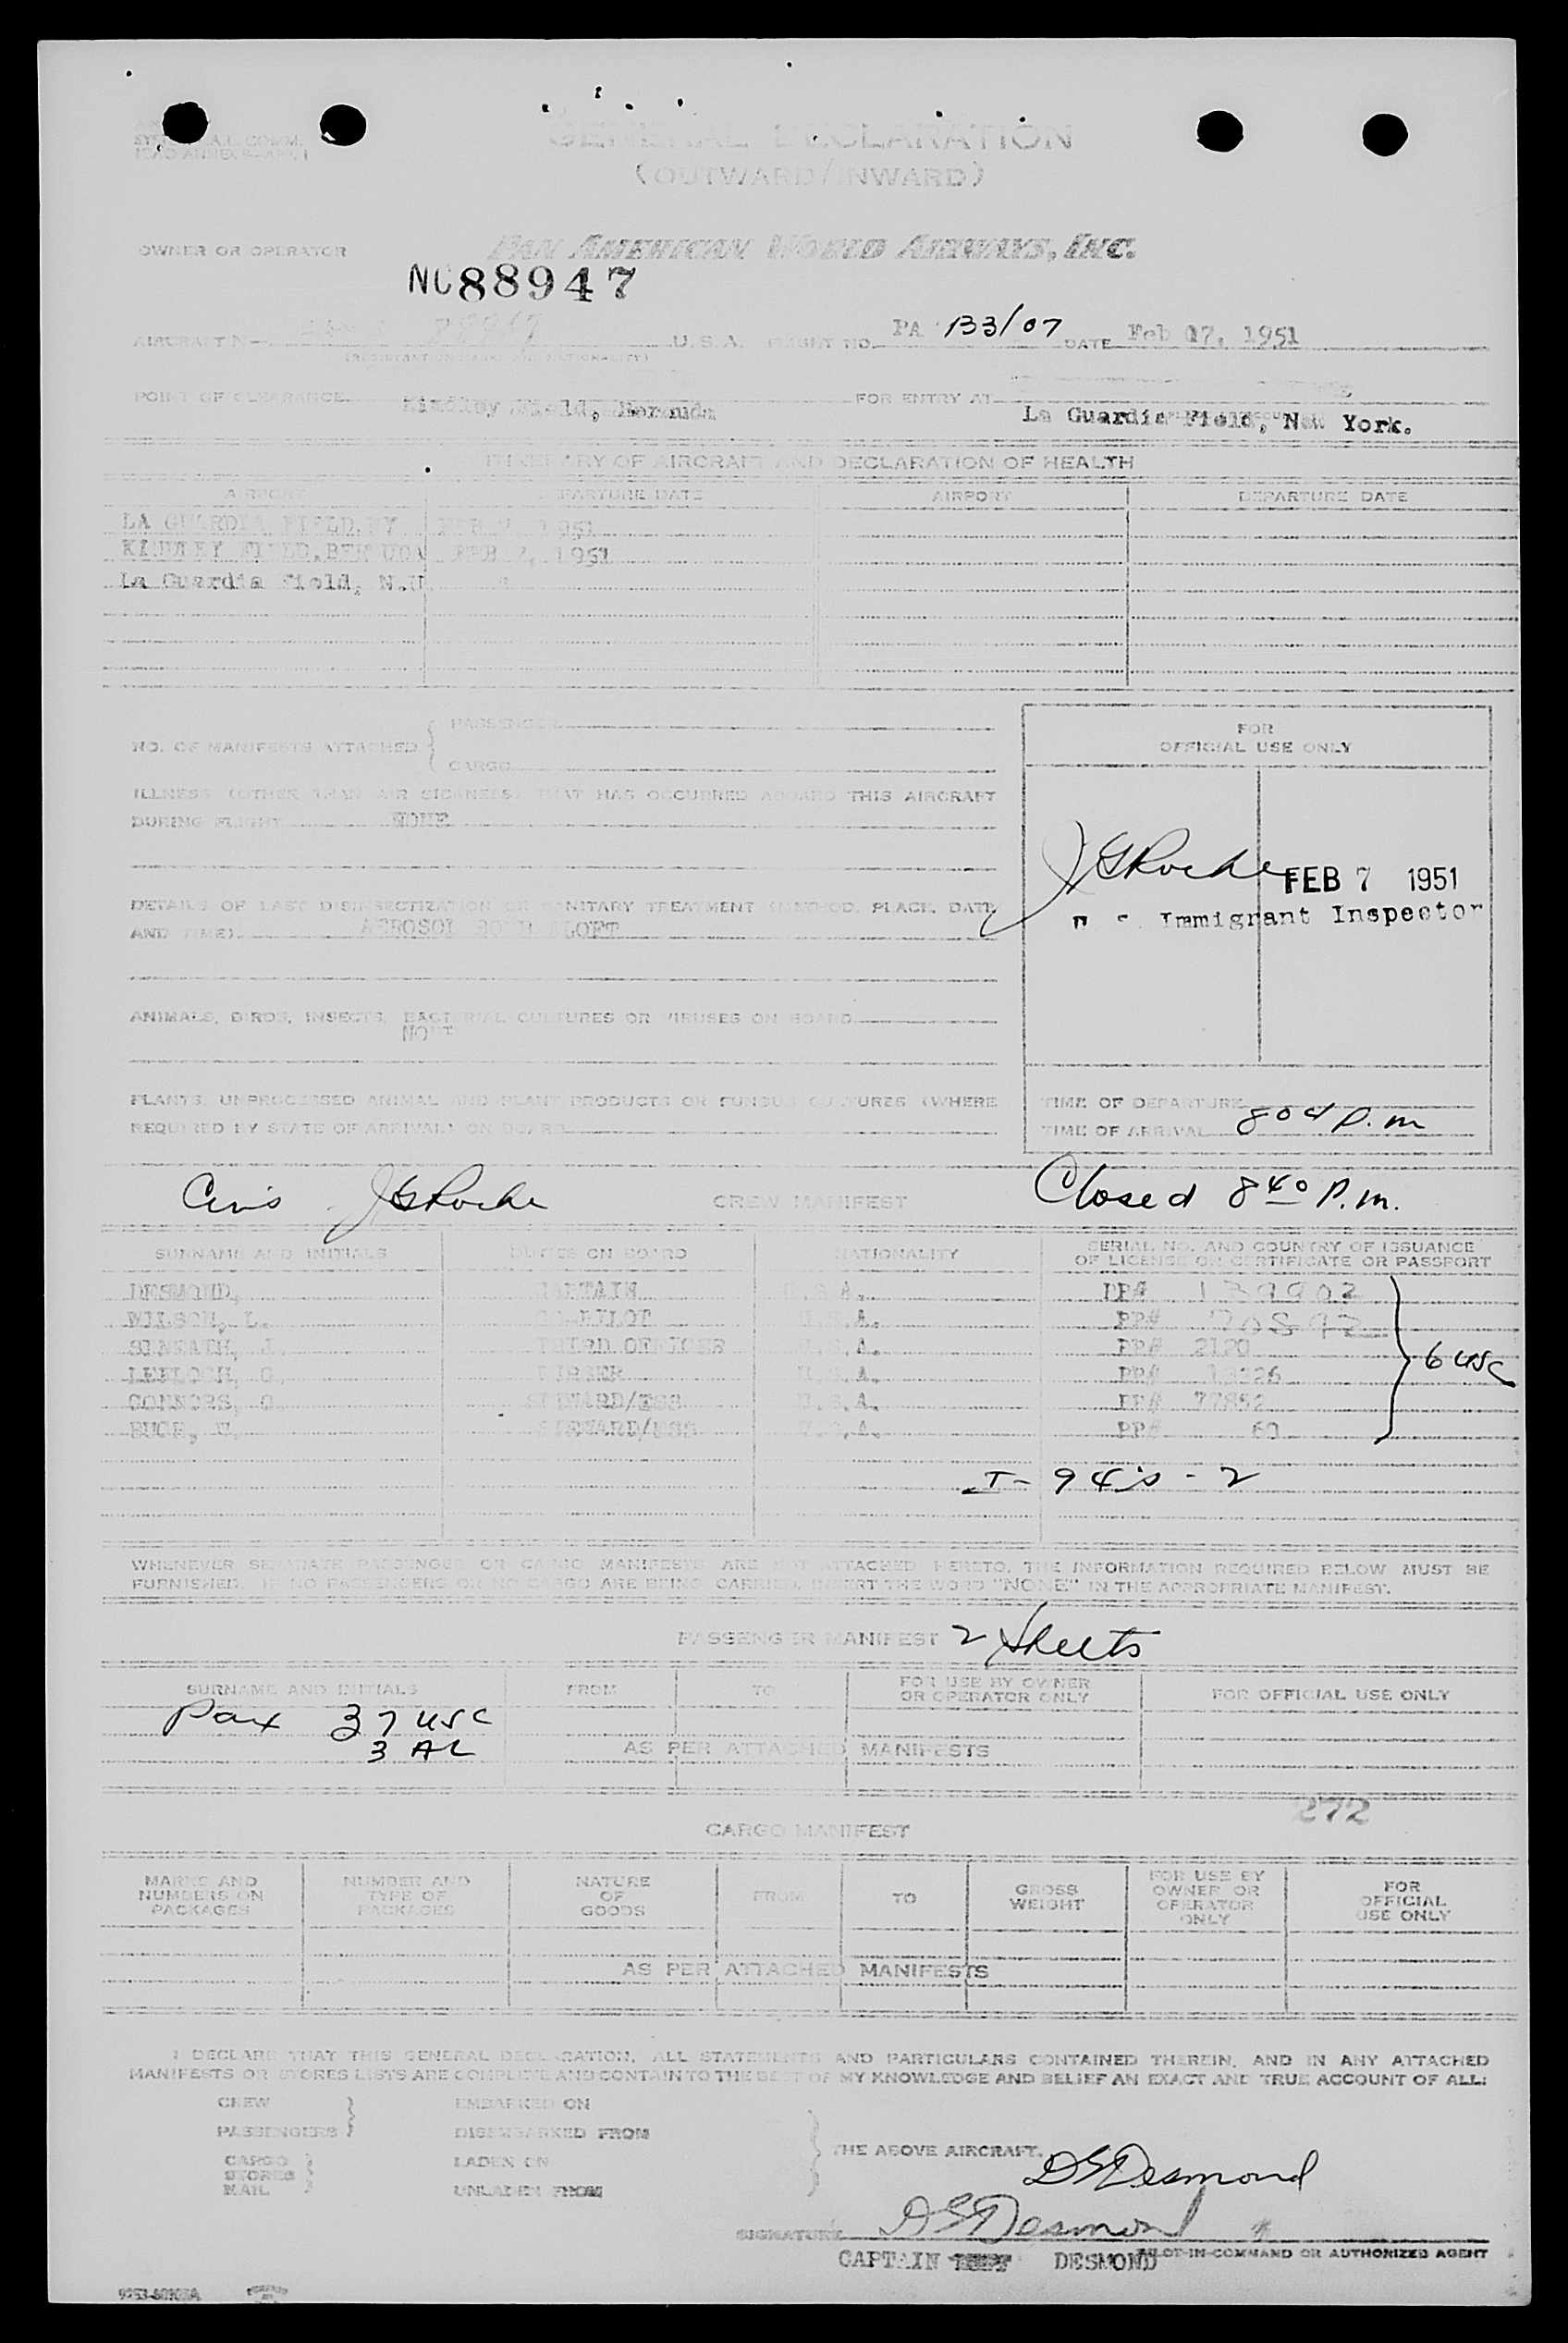 GENERAL DECLARATION
(OUTWARD/INWARD)
OWNER OR OPERATOR PAN AMERICAN WORLD AIRWAYS, INC.
NC88947
AIRCRAFT U.S.A. FLIGHT NO. PA 133/07 DATE Feb 07, 1951
(REGISTRATION MARKS AND NATIONALITY)
POINT OF CLEARANCE Kindley Field, Bermuda FOR ENTRY AT La Guardia Field, New York.
ITINERARY OF AIRCRAFT AND DECLARATION OF HEALTH
AIRPORT DEPARTURE DATE AIRPORT DEPARTURE DATE
LA GUARDIA FIELD, NY FEB 7, 1951
KINDLEY FIELD, BERMUDA FEB 7, 1951
La Guardia Field, N.Y.
NO. OF MANIFESTS ATTACHED { PASSENGER
CARGO
ILLNESS (OTHER THAN AIR SICKNESS) THAT HAS OCCURRED ABOARD THIS AIRCRAFT
DURING FLIGHT NONE
DETAILS OF LAST DISINSECTIZATION OR SANITARY TREATMENT (METHOD, PLACE, DATE
AND TIME) AEROSOL BOMB ALOFT
ANIMALS, BIRDS, INSECTS, BACTERIAL CULTURES OR VIRUSES ON BOARD
NONE
PLANTS, UNPROCESSED ANIMAL AND PLANT PRODUCTS OR FUNGUS CULTURES (WHERE
REQUIRED BY STATE OF ARRIVAL) ON BOARD
FOR
OFFICIAL USE ONLY
JGRoche FEB 7 1951
Immigrant Inspector
TIME OF DEPARTURE
TIME OF ARRIVAL 8 04 P.m
JGRoche CREW MANIFEST Closed 8 40 P.m.
SURNAME AND INITIALS DUTIES ON BOARD NATIONALITY SERIAL NO. AND COUNTRY OF ISSUANCE
OF LICENSE OR CERTIFICATE OR PASSPORT
DESMOND, CAPTAIN U.S.A. PP# 139902
WILSON, L. CO-PILOT U.S.A. PP# 70892
J. THIRD OFFICER U.S.A. PP# 2120
PURSER U.S.A. PP# 6 usc
CONNORS, STEWARD/ESS U.S.A. PP# 77852
STEWARD/ESS U.S.A. PP# 60
I-94's - 2
WHENEVER SEPARATE PASSENGER OR CARGO MANIFESTS ARE NOT ATTACHED HERETO, THE INFORMATION REQUIRED BELOW MUST BE
FURNISHED. IF NO PASSENGERS OR NO CARGO ARE BEING CARRIED, INSERT THE WORD "NONE" IN THE APPROPRIATE MANIFEST.
PASSENGER MANIFEST 2 Sheets
SURNAME AND INITIALS FROM TO FOR USE BY OWNER
OR OPERATOR ONLY FOR OFFICIAL USE ONLY
Pax 37 usc
3 AL
AS PER ATTACHED MANIFESTS
272
CARGO MANIFEST
MARKS AND
NUMBERS ON
PACKAGES NUMBER AND
TYPE OF
PACKAGES NATURE
OF
GOODS FROM TO GROSS
WEIGHT FOR USE BY
OWNER OR
OPERATOR
ONLY FOR
OFFICIAL
USE ONLY
AS PER ATTACHED MANIFESTS
I DECLARE THAT THIS GENERAL DECLARATION, ALL STATEMENTS AND PARTICULARS CONTAINED THEREIN, AND IN ANY ATTACHED
MANIFESTS OR STORES LISTS ARE COMPLETE AND CONTAIN TO THE BEST OF MY KNOWLEDGE AND BELIEF AN EXACT AND TRUE ACCOUNT OF ALL:
CREW EMBARKED ON
PASSENGERS DISEMBARKED FROM
CARGO LADEN ON
STORES
MAIL UNLADEN FROM
THE ABOVE AIRCRAFT.
DSDesmond
SIGNATURE DSDesmond
PILOT-IN-COMMAND OR AUTHORIZED AGENT
CAPTAIN DESMOND